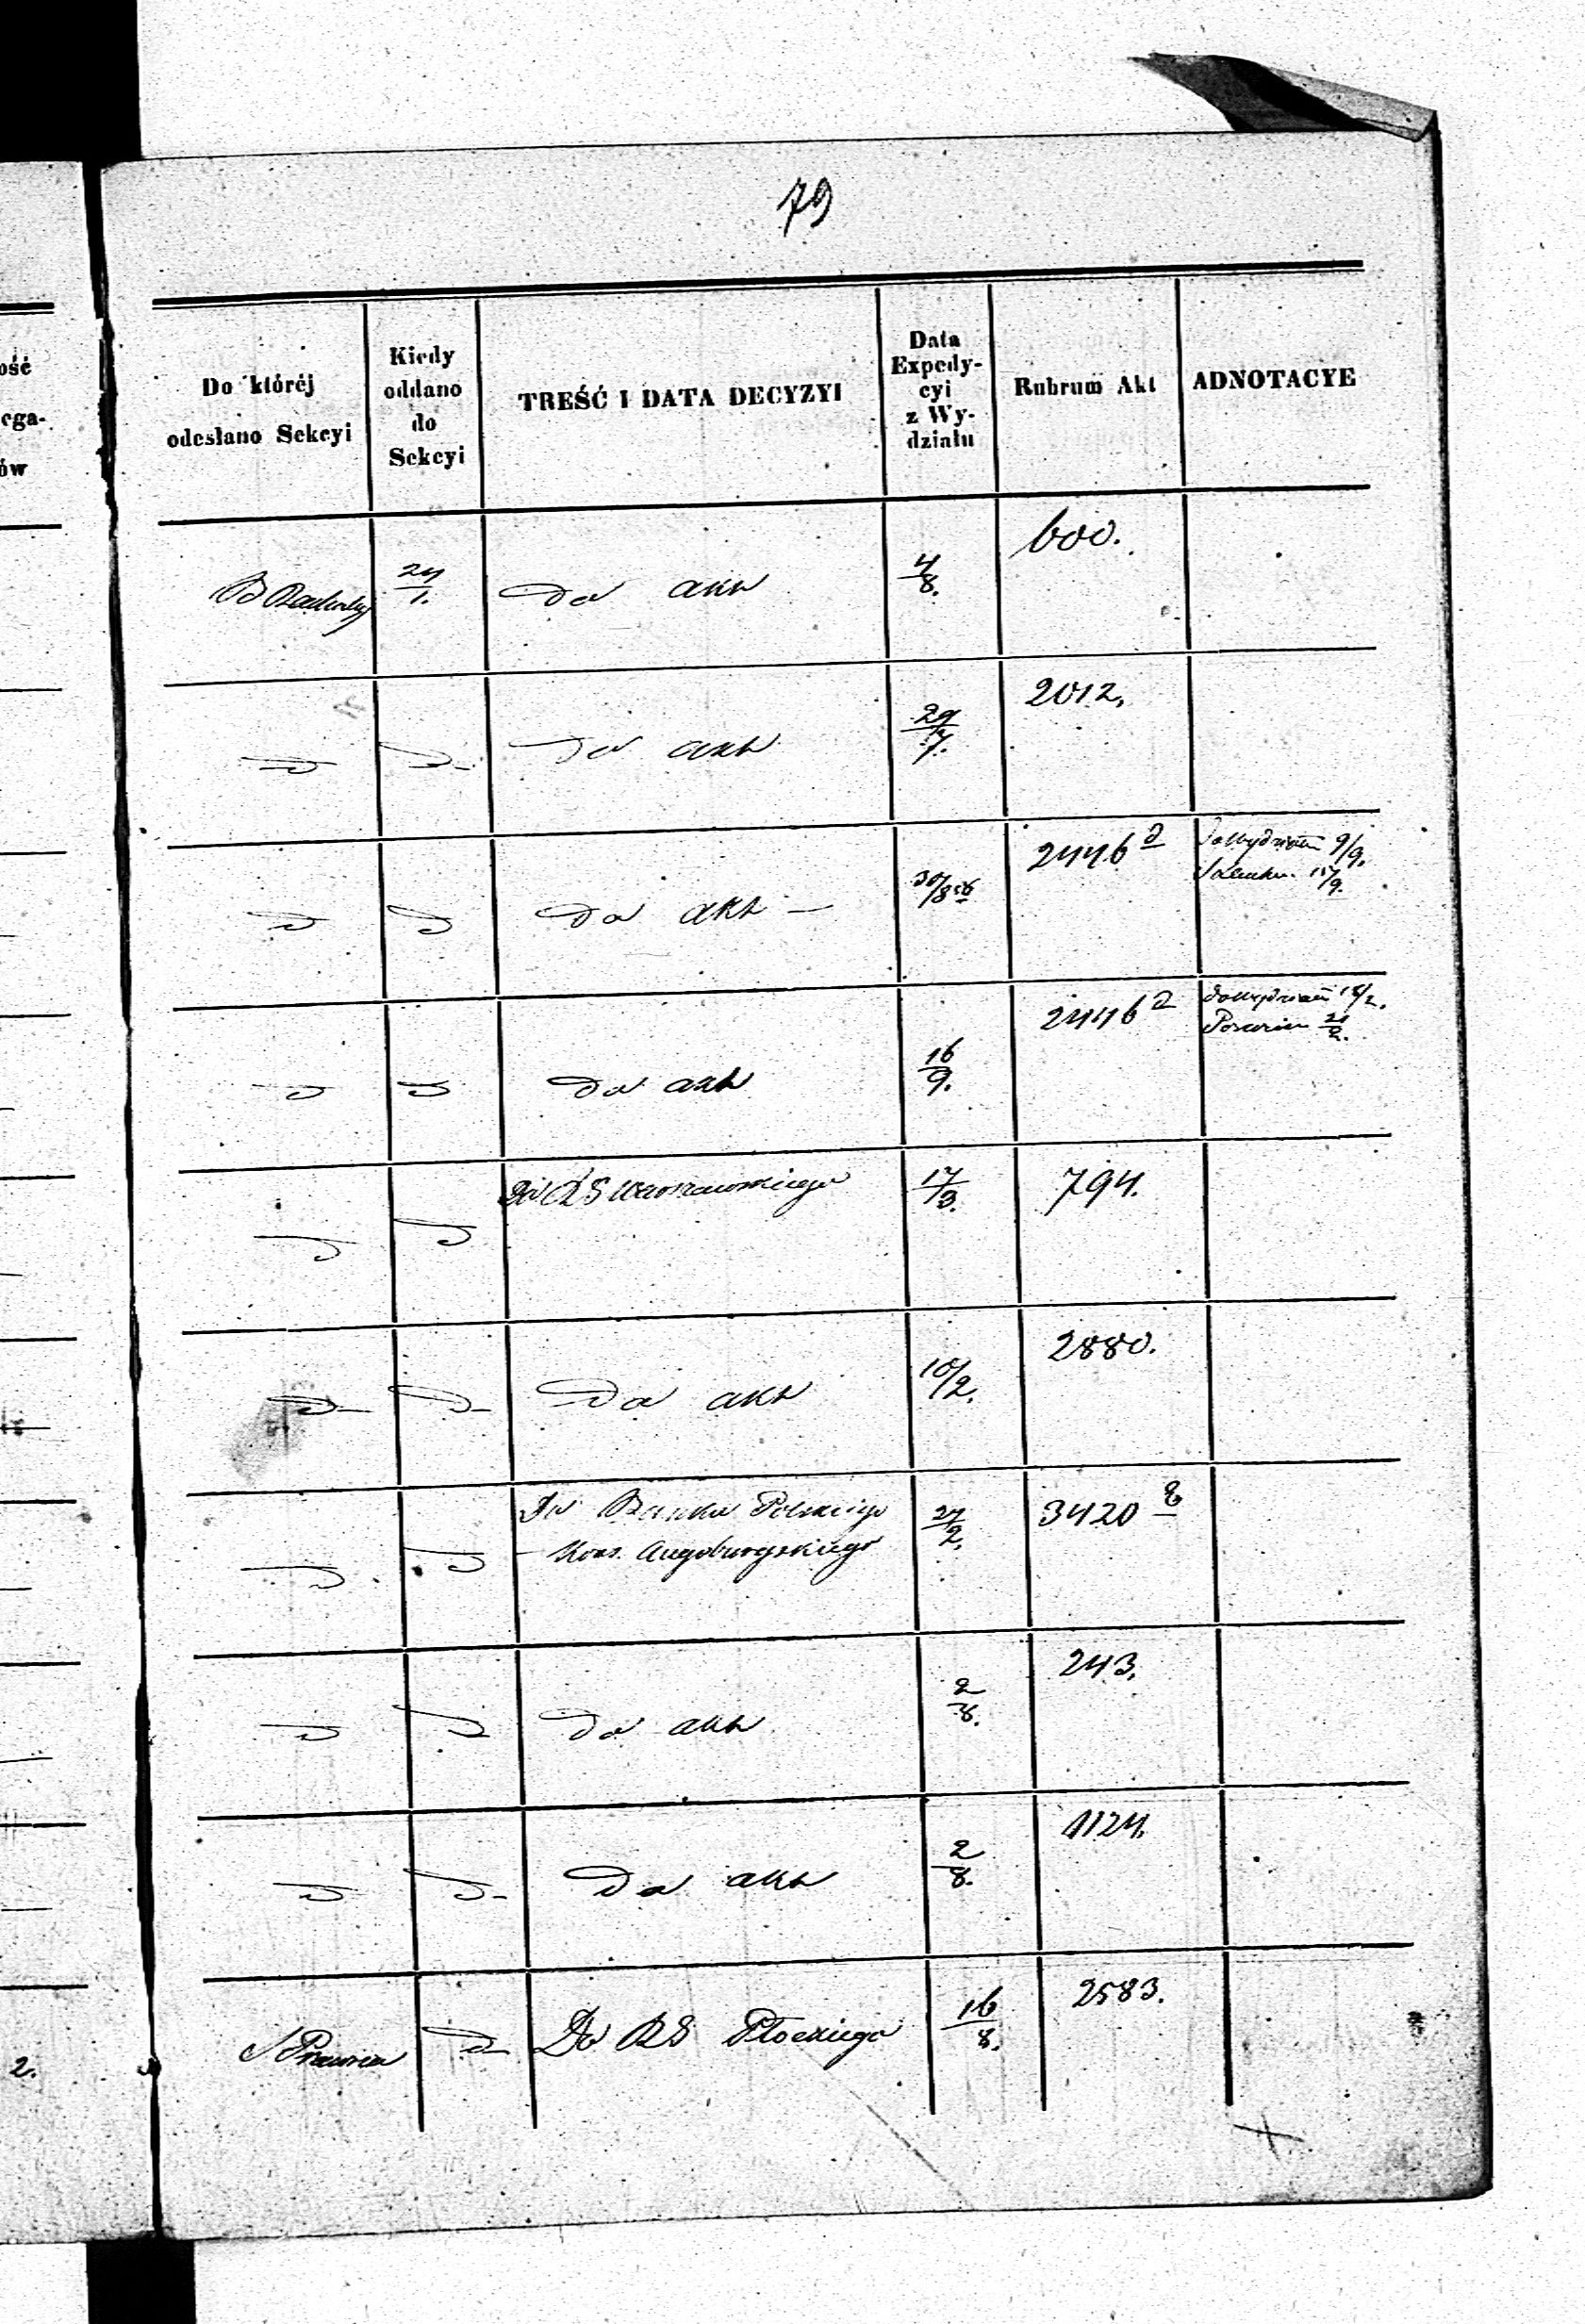 79
ość
ega-
ów
Do któréj
odesłano Sekcyi
Kiedy
oddano
do
Sekcyi
TREŚĆ I DATA DECYZYI
Data
Expedy-
cyi
z Wy-
działu
Rubrum Akt
ADNOTACYE
24/1. Do akt 4/8. 600.
Do akt 29/7. 2012.
Do akt — 30/8 2446
9/9.
Do akt 16/9. 2446
Do RS Warszawskiego 17/3. 794.
Do akt 10/2. 2880.
Do Banku Polskiego 27/2. 3420
Kons. Augsburgskiego
Do akt 2/8. 243.
Do akt 2/8. 1124.
S Prawna Do RS Płockiego 16/8. 2583.
2.